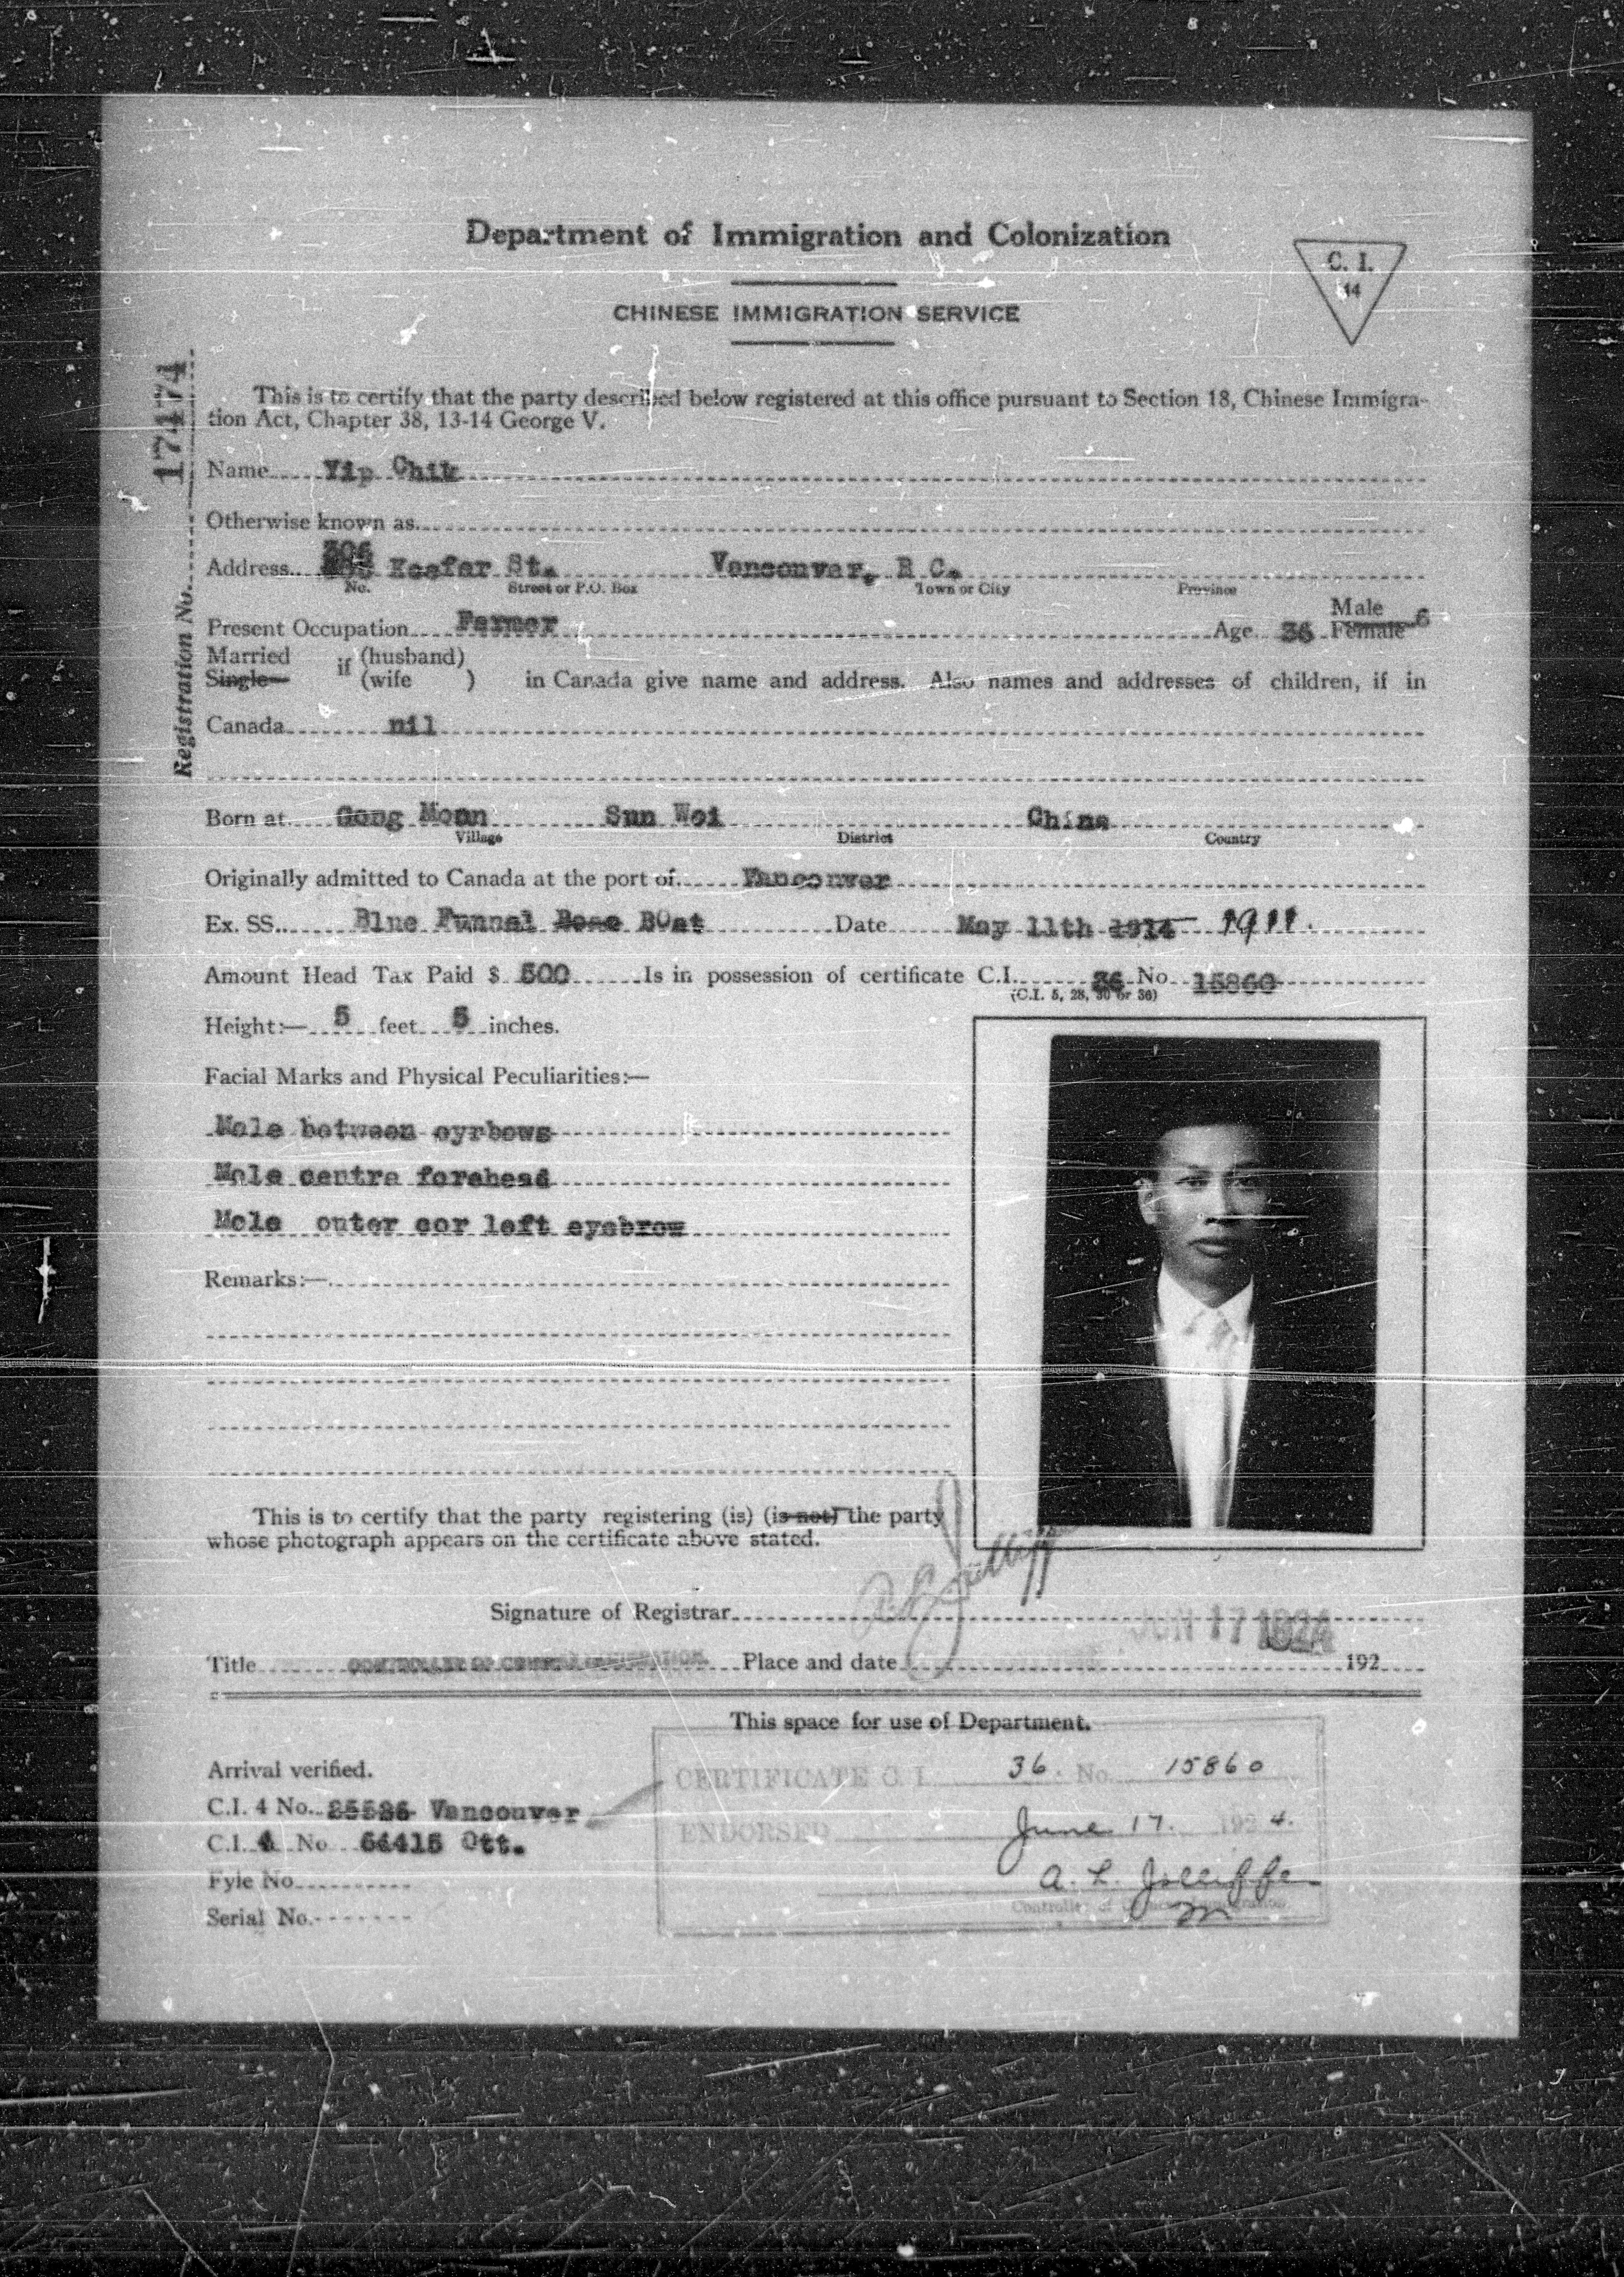 Department of Immigration and Colonization
C. I.
14
CHINESE IMMIGRATION SERVICE
Registration No. 17474
This is to certify that the party described below registered at this office pursuant to Section 18, Chinese Immigra-
tion Act, Chapter 38, 13-14 George V.
Name Yip Chik
Otherwise known as
306
Address Keefer St. Vancouver, B C.
No. Street or P.O. Box Town or City Province
Male
Present Occupation Farmer Age 36 Female 6
Married if (husband)
Single (wife ) in Canada give name and address. Also names and addresses of children, if in
Canada nil
Born at Gong Moon Sun Woi China
Village District Country
Originally admitted to Canada at the port of Vancouver
Ex. SS. Blue Funnel Bose BOat Date May 11th 1914 1911.
Amount Head Tax Paid $ 500 Is in possession of certificate C.I. 36 No. 15860
(C.I. 5, 28, 30 or 36)
Height:— 5 feet 5 inches.
Facial Marks and Physical Peculiarities:—
Mole between eyrbows
Mole centre forehead
Mole outer cor left eyebrow
Remarks:—
This is to certify that the party registering (is) (is not) the party
whose photograph appears on the certificate above stated.
Signature of Registrar A L Jolliffe
JUN 17 1924
Title CONTROLLER OF CHINESE IMMIGRATION. Place and date 192
This space for use of Department.
Arrival verified.
CERTIFICATE C. I. 36. No. 15860
C.I. 4 No. 85586 Vancouver
ENDORSED June 17. 1924.
C.I. 4 No 64415 Ott.
A. L. Jolliffe
Fyle No
Controller of Chinese Immigration.
Serial No.